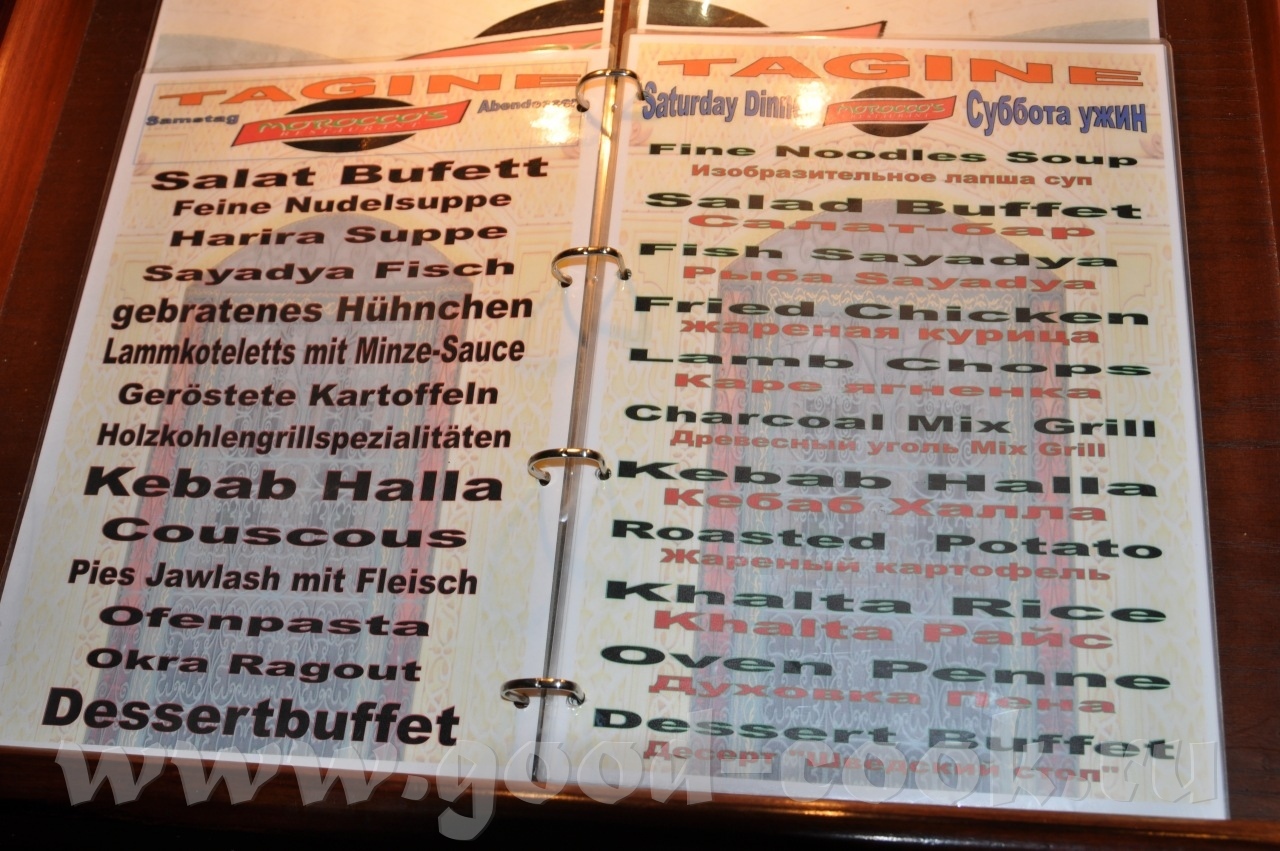 TAGINE
Samstag
MOROCCO'S
Salat Bufett
Feine Nudelsuppe
Harira Suppe
Sayadya Fisch
gebratenes Hühnchen
Lammkoteletts mit Minze-Sauce
Geröstete Kartoffeln
Holzkohlengrillspezialitäten
Kebab Halla
Couscous
Pies Jawlash mit Fleisch
Ofenpasta
Okra Ragout
Dessertbuffet
TAGINE
Saturday
MOROCCO'S
Суббота ужин
Fine Noodles Soup
Изобразительное лапша суп
Salad Buffet
Салат-бар
Fish Sayadya
Рыба Sayadya
Fried Chicken
жареная курица
Lamb Chops
Каре ягненка
Charcoal Mix Grill
Древесный уголь Mix Grill
Kebab Halla
Кебаб Халла
Roasted Potato
Жареный картофель
Khalta Rice
Khalta Райс
Oven Penne
Духовка Пена
Dessert Buffet
Десерт "Шведский стол"
www.good-cook.ru